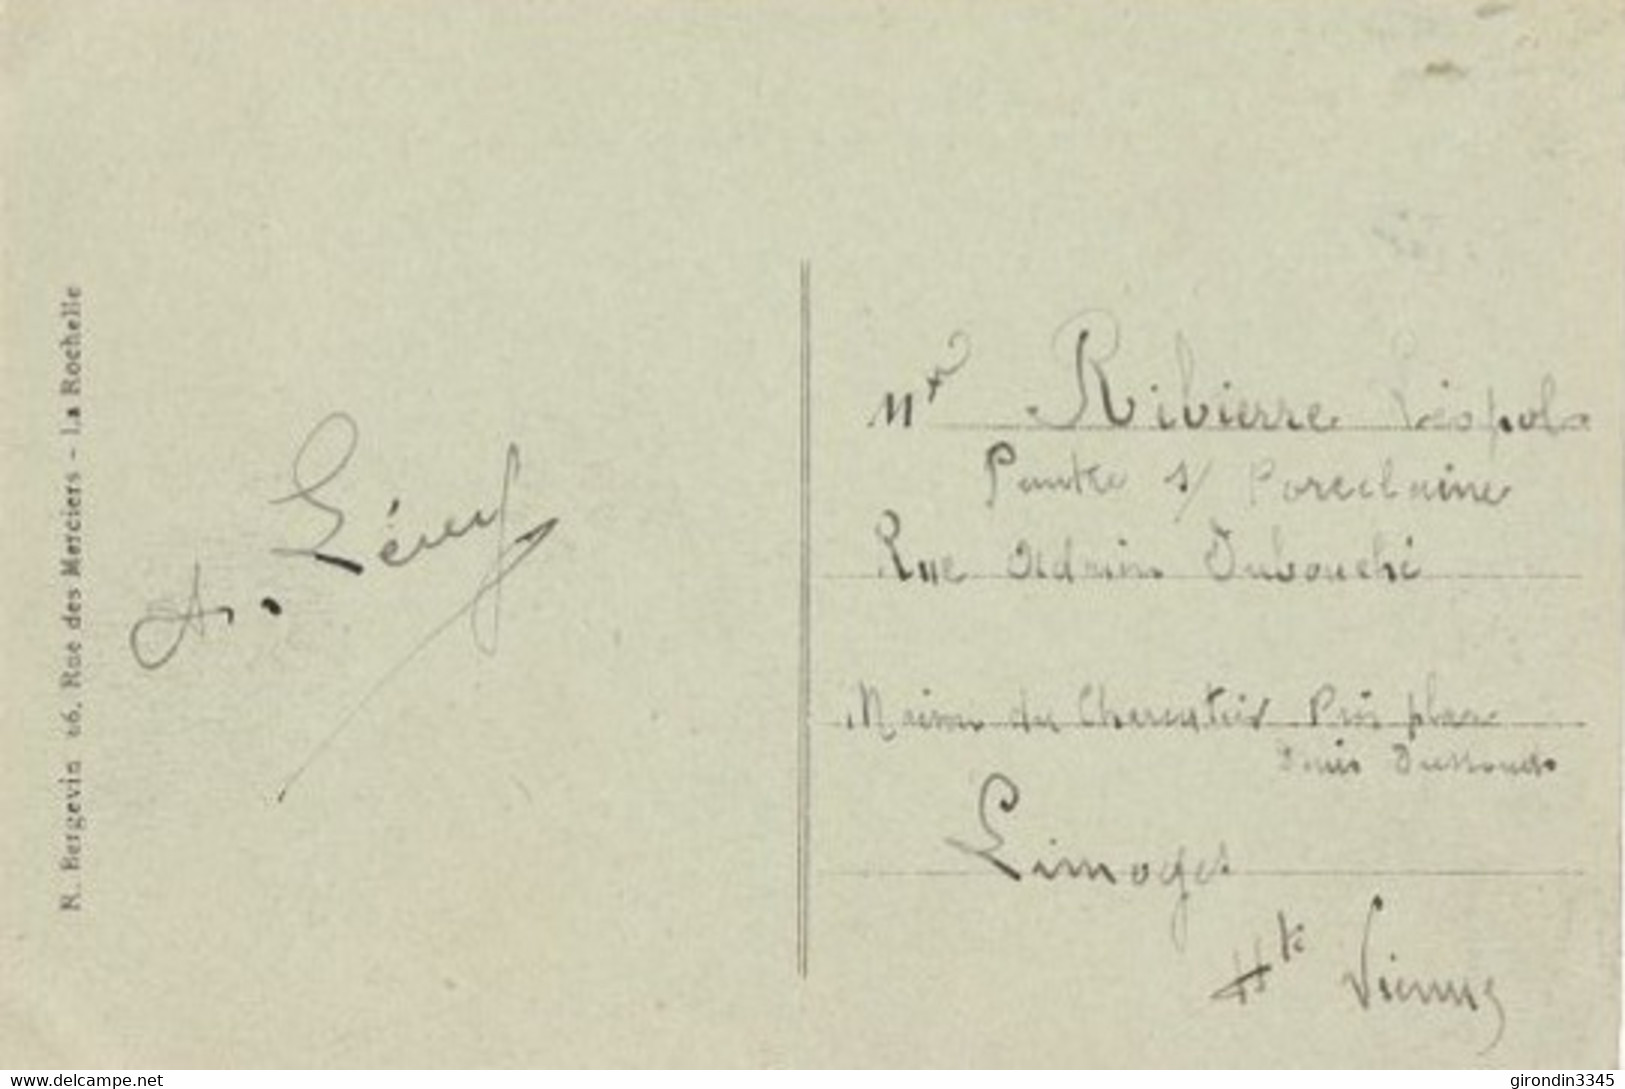 R. Bergevin 26, Rue des Merciers - La Rochelle
A. Lévy
Mr Ribierre Léopol
Peintre s/ Porcelaine
Rue Adrien Dubouché
Maison du Charcutier Près place
Denis Dussoubs
Limoges
Hte Vienne
www.delcampe.net
girondin3345